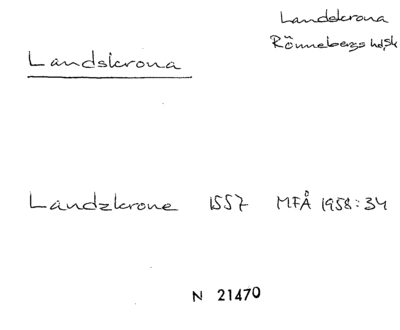 Landskrona
Rönnebergs hd, Sk
Landskrona
Landzkrone 1557 MFÅ 1958:34
N 21470